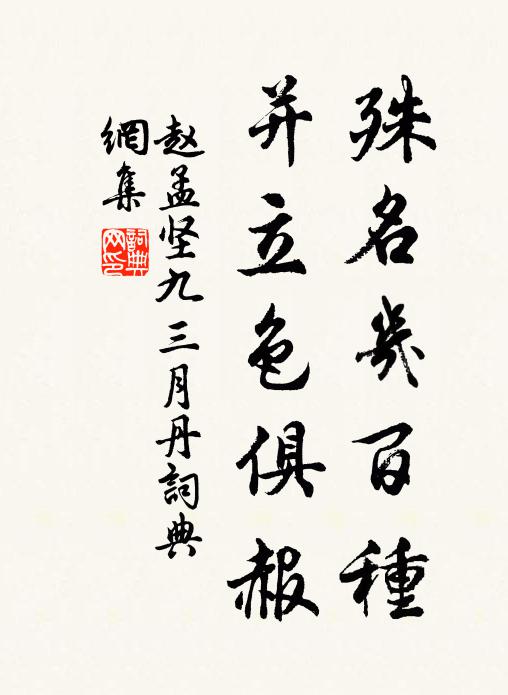 殊名幾百種
并立色俱赧
赵孟坚九三月丹詞典
網集
詞典
网印